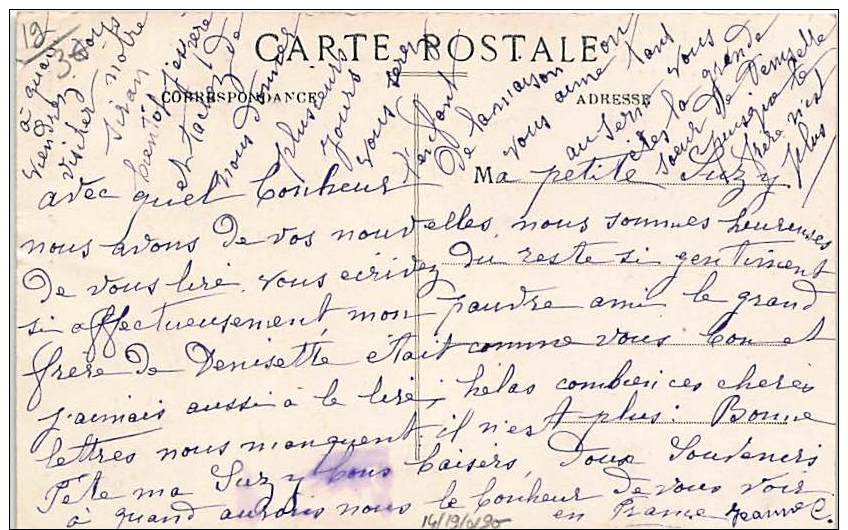 CARTE POSTALE
CORRESPONDANCE
ADRESSE
Ma petite Suzy
avec quel bonheur
nous avons de vos nouvelles, nous sommes heureuses
de vous lire. vous écrivez du reste si gentiment
si affectueusement, mon pauvre ami le grand
frère de Denisette était comme vous bon et
j'aimais aussi à le lire, hélas combien ces chères
lettres nous manquent, il n'est plus. Bonne
Fête ma Suzy bons baisers, Doux Souvenirs
à quand aurons nous le bonheur de vous voir
en France Jeanne C.
à quand
viendrez vous
visiter
notre
bientôt j'espère
et tachez de
nous donner
plusieurs
jours
vous serez
l'enfant
de la maison on
vous aime tant
vous
êtes la grande
soeur de Denisette
puisque le
frère n'est
plus
19